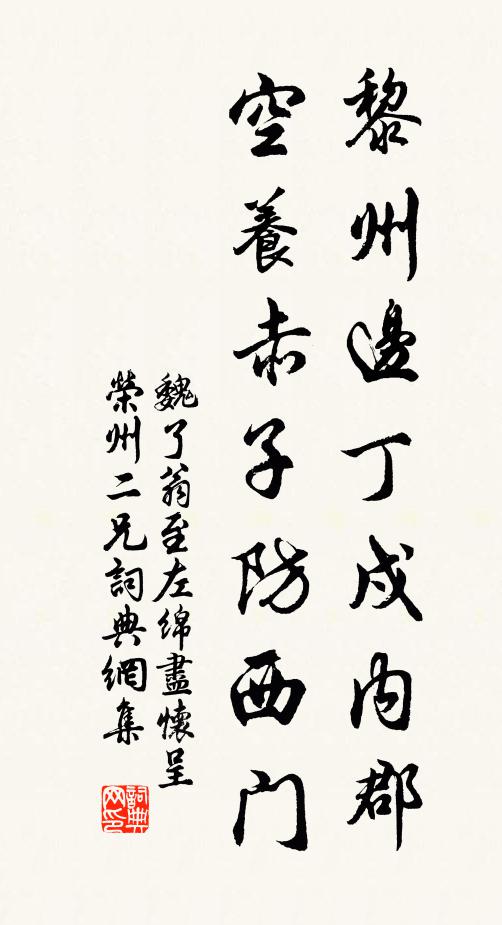 黎州邊丁戍內郡
空養赤子防西門
魏了翁至左綿盡懷呈
榮州二兄詞典網集
詞典网印